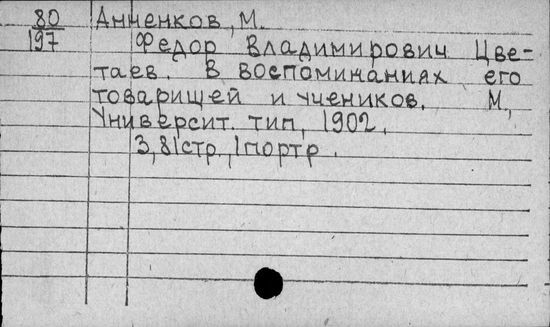 80 Анненков, М.
197 Федор Владимирович Цве-
таев. В воспоминаниях его
товарищей и учеников. М.,
Университ. тип, 1902.
3,81стр., 1портр.